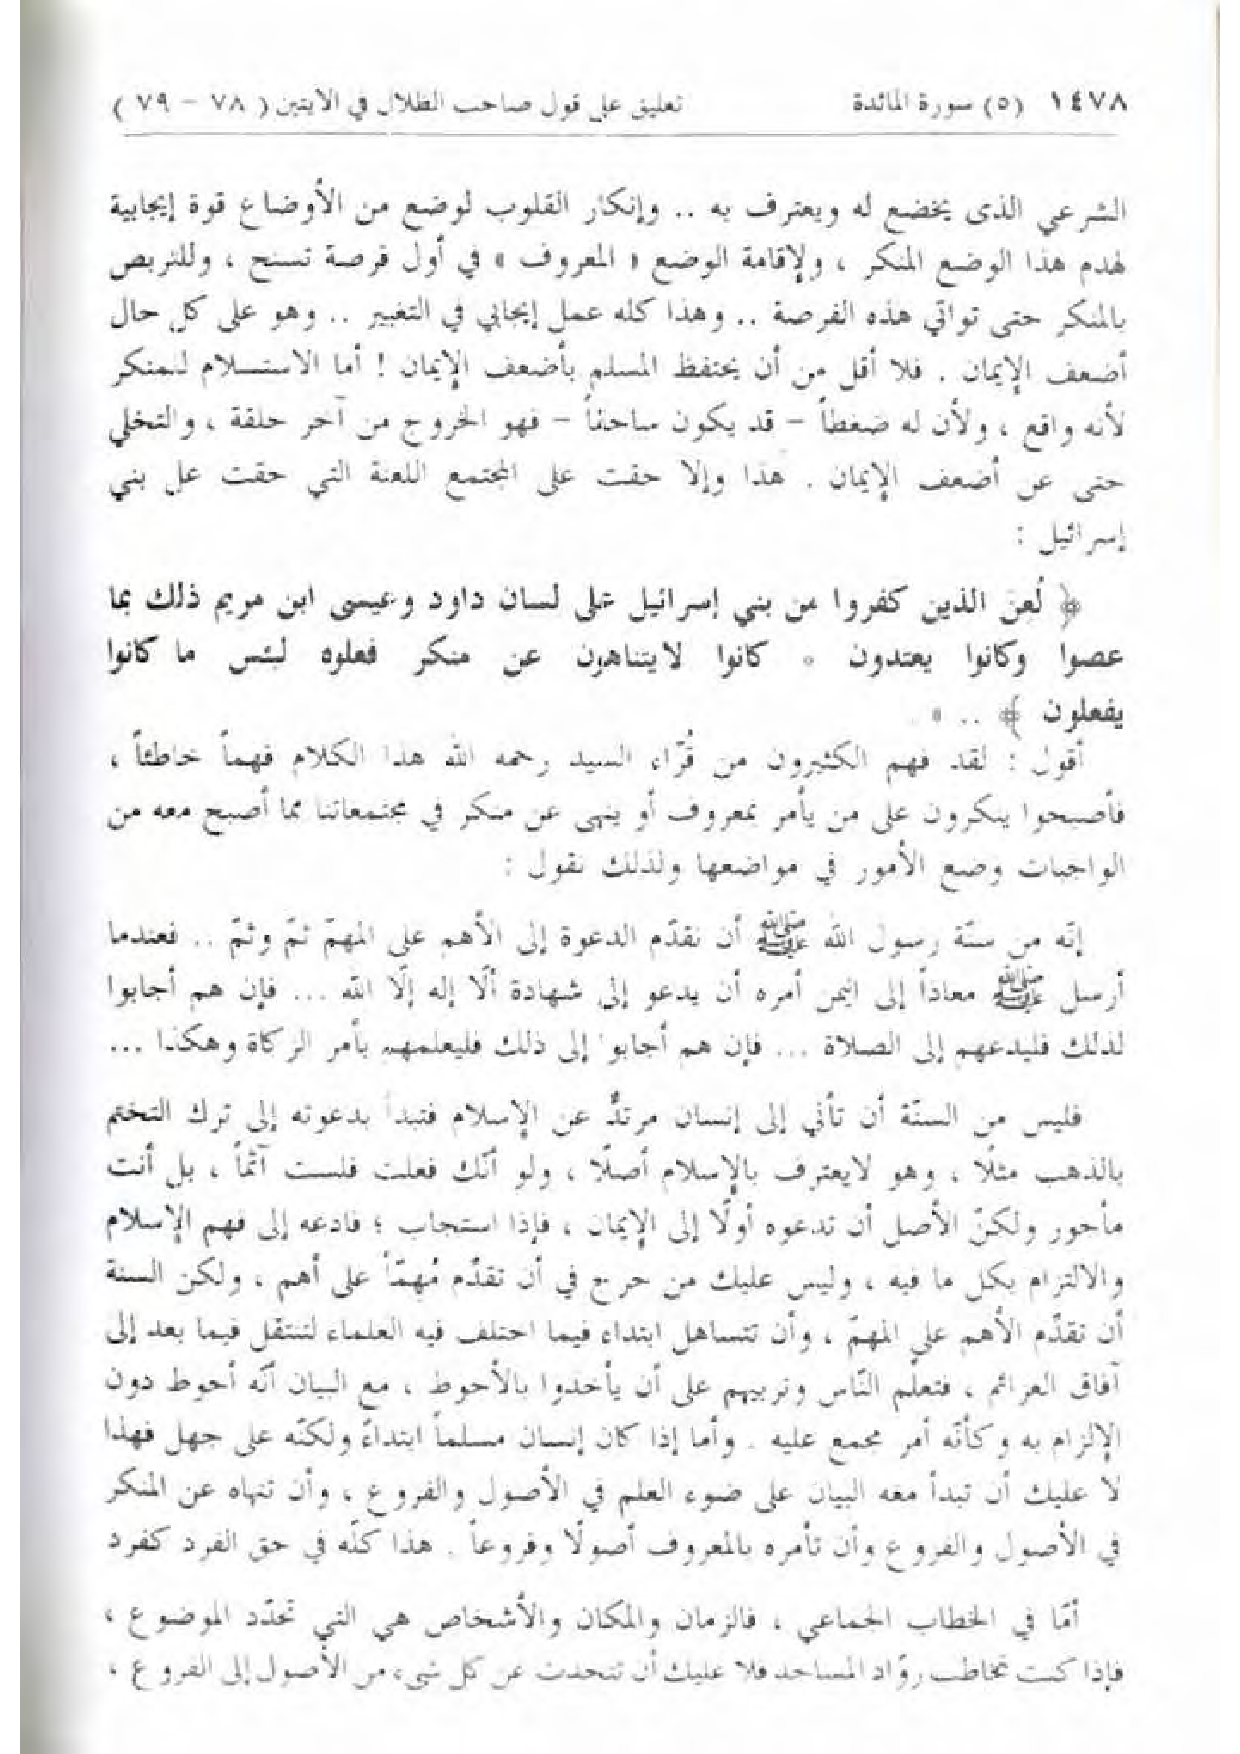 ١٤٧٨ (٥) سورة المائدة تعليق على قول صاحب الظلال في الآيتين ( ٧٨ - ٧٩ )
الشرعي الذى يخضع له ويعترف به .. وإنكار القلوب لوضع من الأوضاع قوة إيجابية
لهدم هذا الوضع المنكر ، ولإقامة الوضع « المعروف » في أول فرصة تسنح ، وللتربص
بالمنكر حتى تواتي هذه الفرصة .. وهذا كله عمل إيجابي في التغيير .. وهو على كل حال
أضعف الإيمان . فلا أقل من أن يحتفظ المسلم بأضعف الإيمان ! أما الاستسلام للمنكر
لأنه واقع ، ولأن له ضغطاً - قد يكون ساحقاً - فهو الخروج من آخر حلقة ، والتخلي
حتى عن أضعف الإيمان . هذا وإلا حقت على المجتمع اللعنة التي حقت على بني
إسرائيل :
﴿ لُعِنَ الذين كفروا من بني إسرائيل على لسان داود وعيسى ابن مريم ذلك بما
عصوا وكانوا يعتدون * كانوا لايتناهون عن منكر فعلوه لبئس ما كانوا
يفعلون ﴾ .. »
أقول : لقد فهم الكثيرون من قُرّاء السيد رحمه الله هذا الكلام فهماً خاطئاً ،
فأصبحوا ينكرون على من يأمر بمعروف أو ينهى عن منكر في مجتمعاتنا مما أصبح معه من
الواجبات وضع الأمور في مواضعها ولذلك نقول :
إنّه من سنّة رسول الله ﷺ أن نقدّم الدعوة إلى الأهم على المهمّ ثمّ وثمّ .. فعندما
أرسل ﷺ معاذاً إلى اليمن أمره أن يدعو إلى شهادة ألّا إله إلّا الله ... فإن هم أجابوا
لذلك فليدعهم إلى الصلاة ... فإن هم أجابوا إلى ذلك فليعلمهم بأمر الزكاة وهكذا ...
فليس من السنّة أن تأتي إلى إنسان مرتدٍّ عن الإسلام فتبدأ بدعوته إلى ترك التختم
بالذهب مثلًا ، وهو لايعترف بالإسلام أصلًا ، ولو أنّك فعلت فلست آثماً ، بل أنت
مأجور ولكنّ الأصل أن تدعوه أولًا إلى الإيمان ، فإذا استجاب ؛ فادعه إلى فهم الإسلام
والالتزام بكل ما فيه ، وليس عليك من حرج في أن تقدّم مُهمّاً على أهم ، ولكن السنة
أن تقدّم الأهم على المهمّ ، وأن تتساهل ابتداء فيما اختلف فيه العلماء لتنتقل فيما بعد إلى
آفاق العزائم ، فتعلّم النّاس ونربيهم على أن يأخذوا بالأحوط ، مع البيان أنّه أحوط دون
الإلزام به وكأنّه أمر مجمع عليه . وأما إذا كان إنسان مسلماً ابتداءً ولكنّه على جهل فهذا
لا عليك أن تبدأ معه البيان على ضوء العلم في الأصول والفروع ، وأن تنهاه عن المنكر
في الأصول والفروع وأن تأمره بالمعروف أصولًا وفروعاً . هذا كلّه في حق الفرد كفرد
أمّا في الخطاب الجماعي ، فالزمان والمكان والأشخاص هي التي تحدّد الموضوع ،
فإذا كنت تخاطب روّاد المساجد فلا عليك أن تتحدث عن كل شيء من الأصول إلى الفروع ،